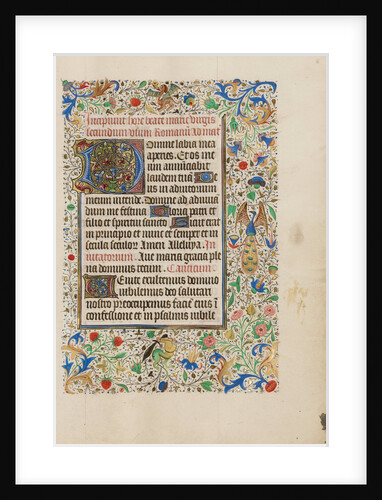 Incipiunt hore beate marie virgis
secundum usum Romanū Ad mat
Domine labia mea
aperies. Et os me
um annūciabit
laudem tuā De
us in adiutorium
meum intende. Domine ad adiuuā
dum me festina Gloria patri et
filio et spiritui sancto Sicut erat
in principio et nunc et semper et in
secula seculor Amen Alleluya. In
uitatorium. Aue maria gracia ple
na dominus tecum. Canticum
Uenite exultemus domino
iubilemus deo salutari
nostro preoccupemus faciē eius ī
confessione et in psalmis iubile